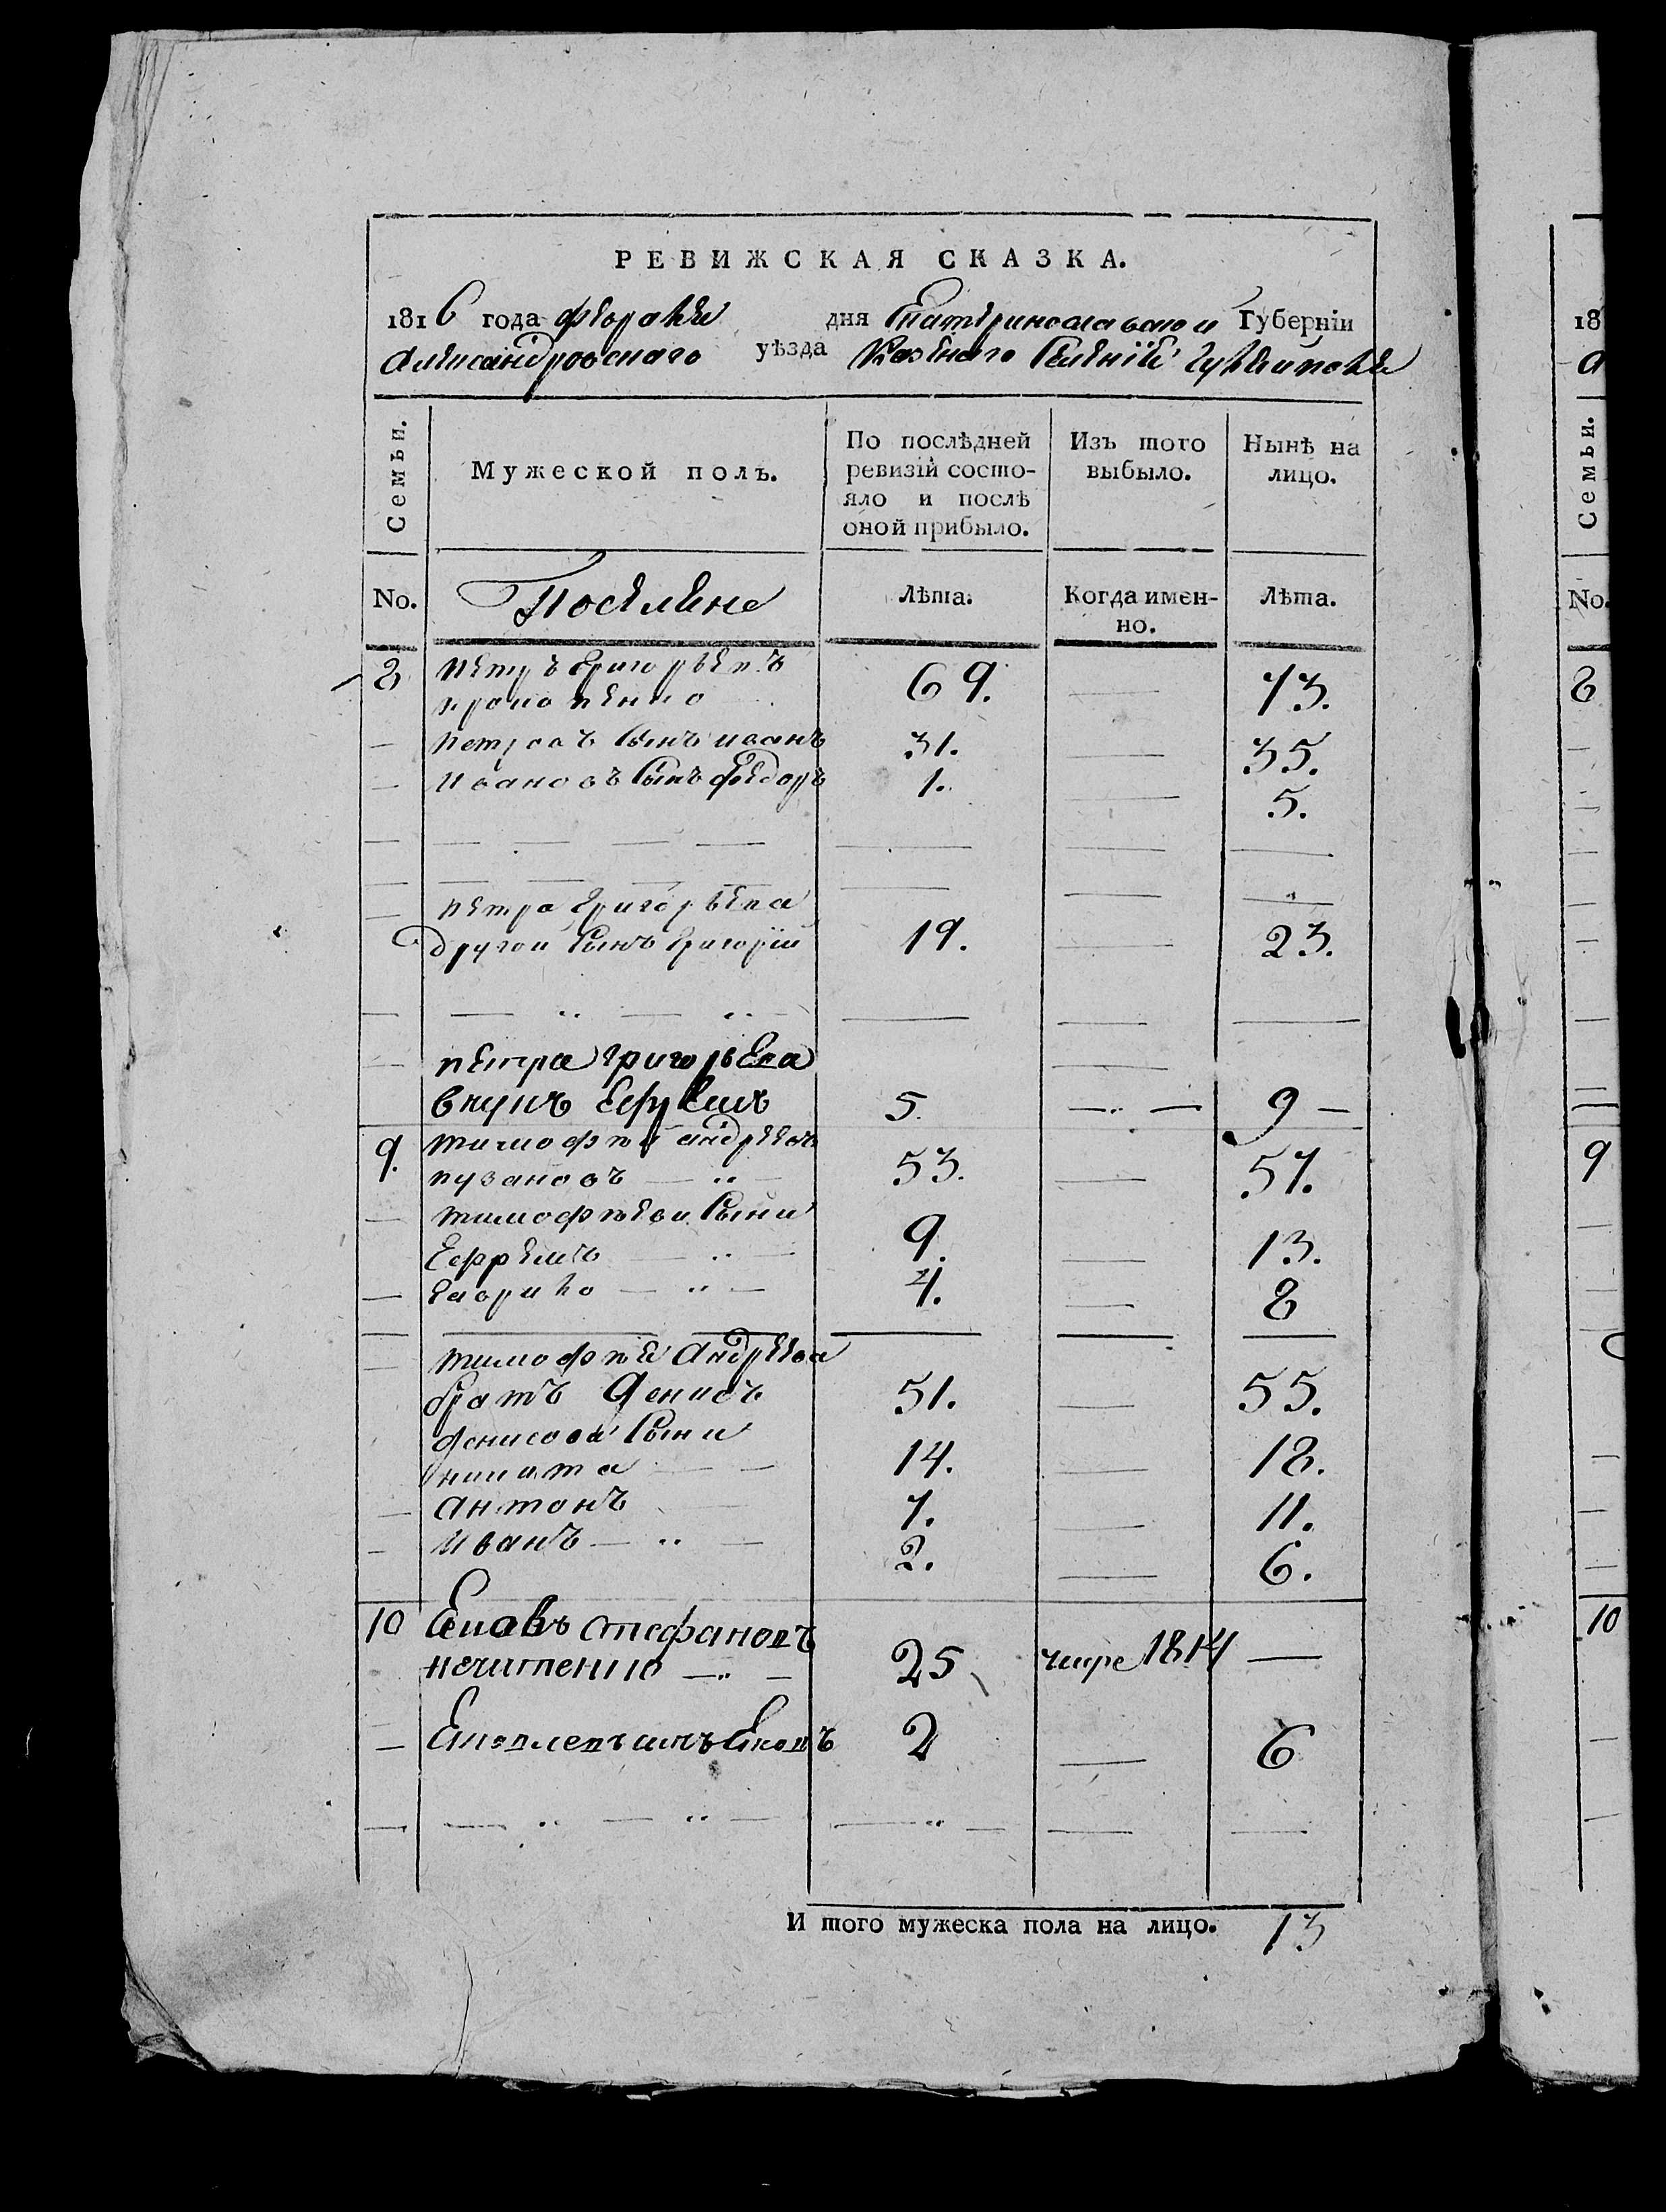 РЕВИЖСКАЯ СКАЗКА.
1816 года февраля дня Екатеринославской Губерніи
александровского уѣзда Казенного Селенія
Семьи.
Мужеской полъ.
По послѣдней ревизіи состояло и послѣ оной прибыло.
Изъ того выбыло.
Нынѣ на лицо.
No.
Поселяне
Лѣта.
Когда имен-
но.
Лѣта.
8 петръ григорьевъ
69. — 73.
— петровъ сынъ иванъ 31. 35.
— Ивановъ сынъ федоръ 1. — 5.
— петра григорьева
другой сынъ григорій 19. — 23.
— петра григорьева
внукъ Ефремъ 5. — 9 —
9. тимофей андреевъ
пузановъ 53. — 57.
— тимофеевы сыни
Ефремъ 9. — 13.
— гаврило 4. — 8
— тимофея андреева
братъ Денисъ 51. — 55.
денисова сыни
никита 14. — 18.
— антонъ 7. — 11.
— Иванъ 2. — 6.
10 Яковъ стефановъ
нечитенко 25 умре 1814 —
— Яковлевъ сынъ Яковъ 2 — 6
И того мужеска пола на лицо. 13
18
а
Семьи.
No.
8
9
10